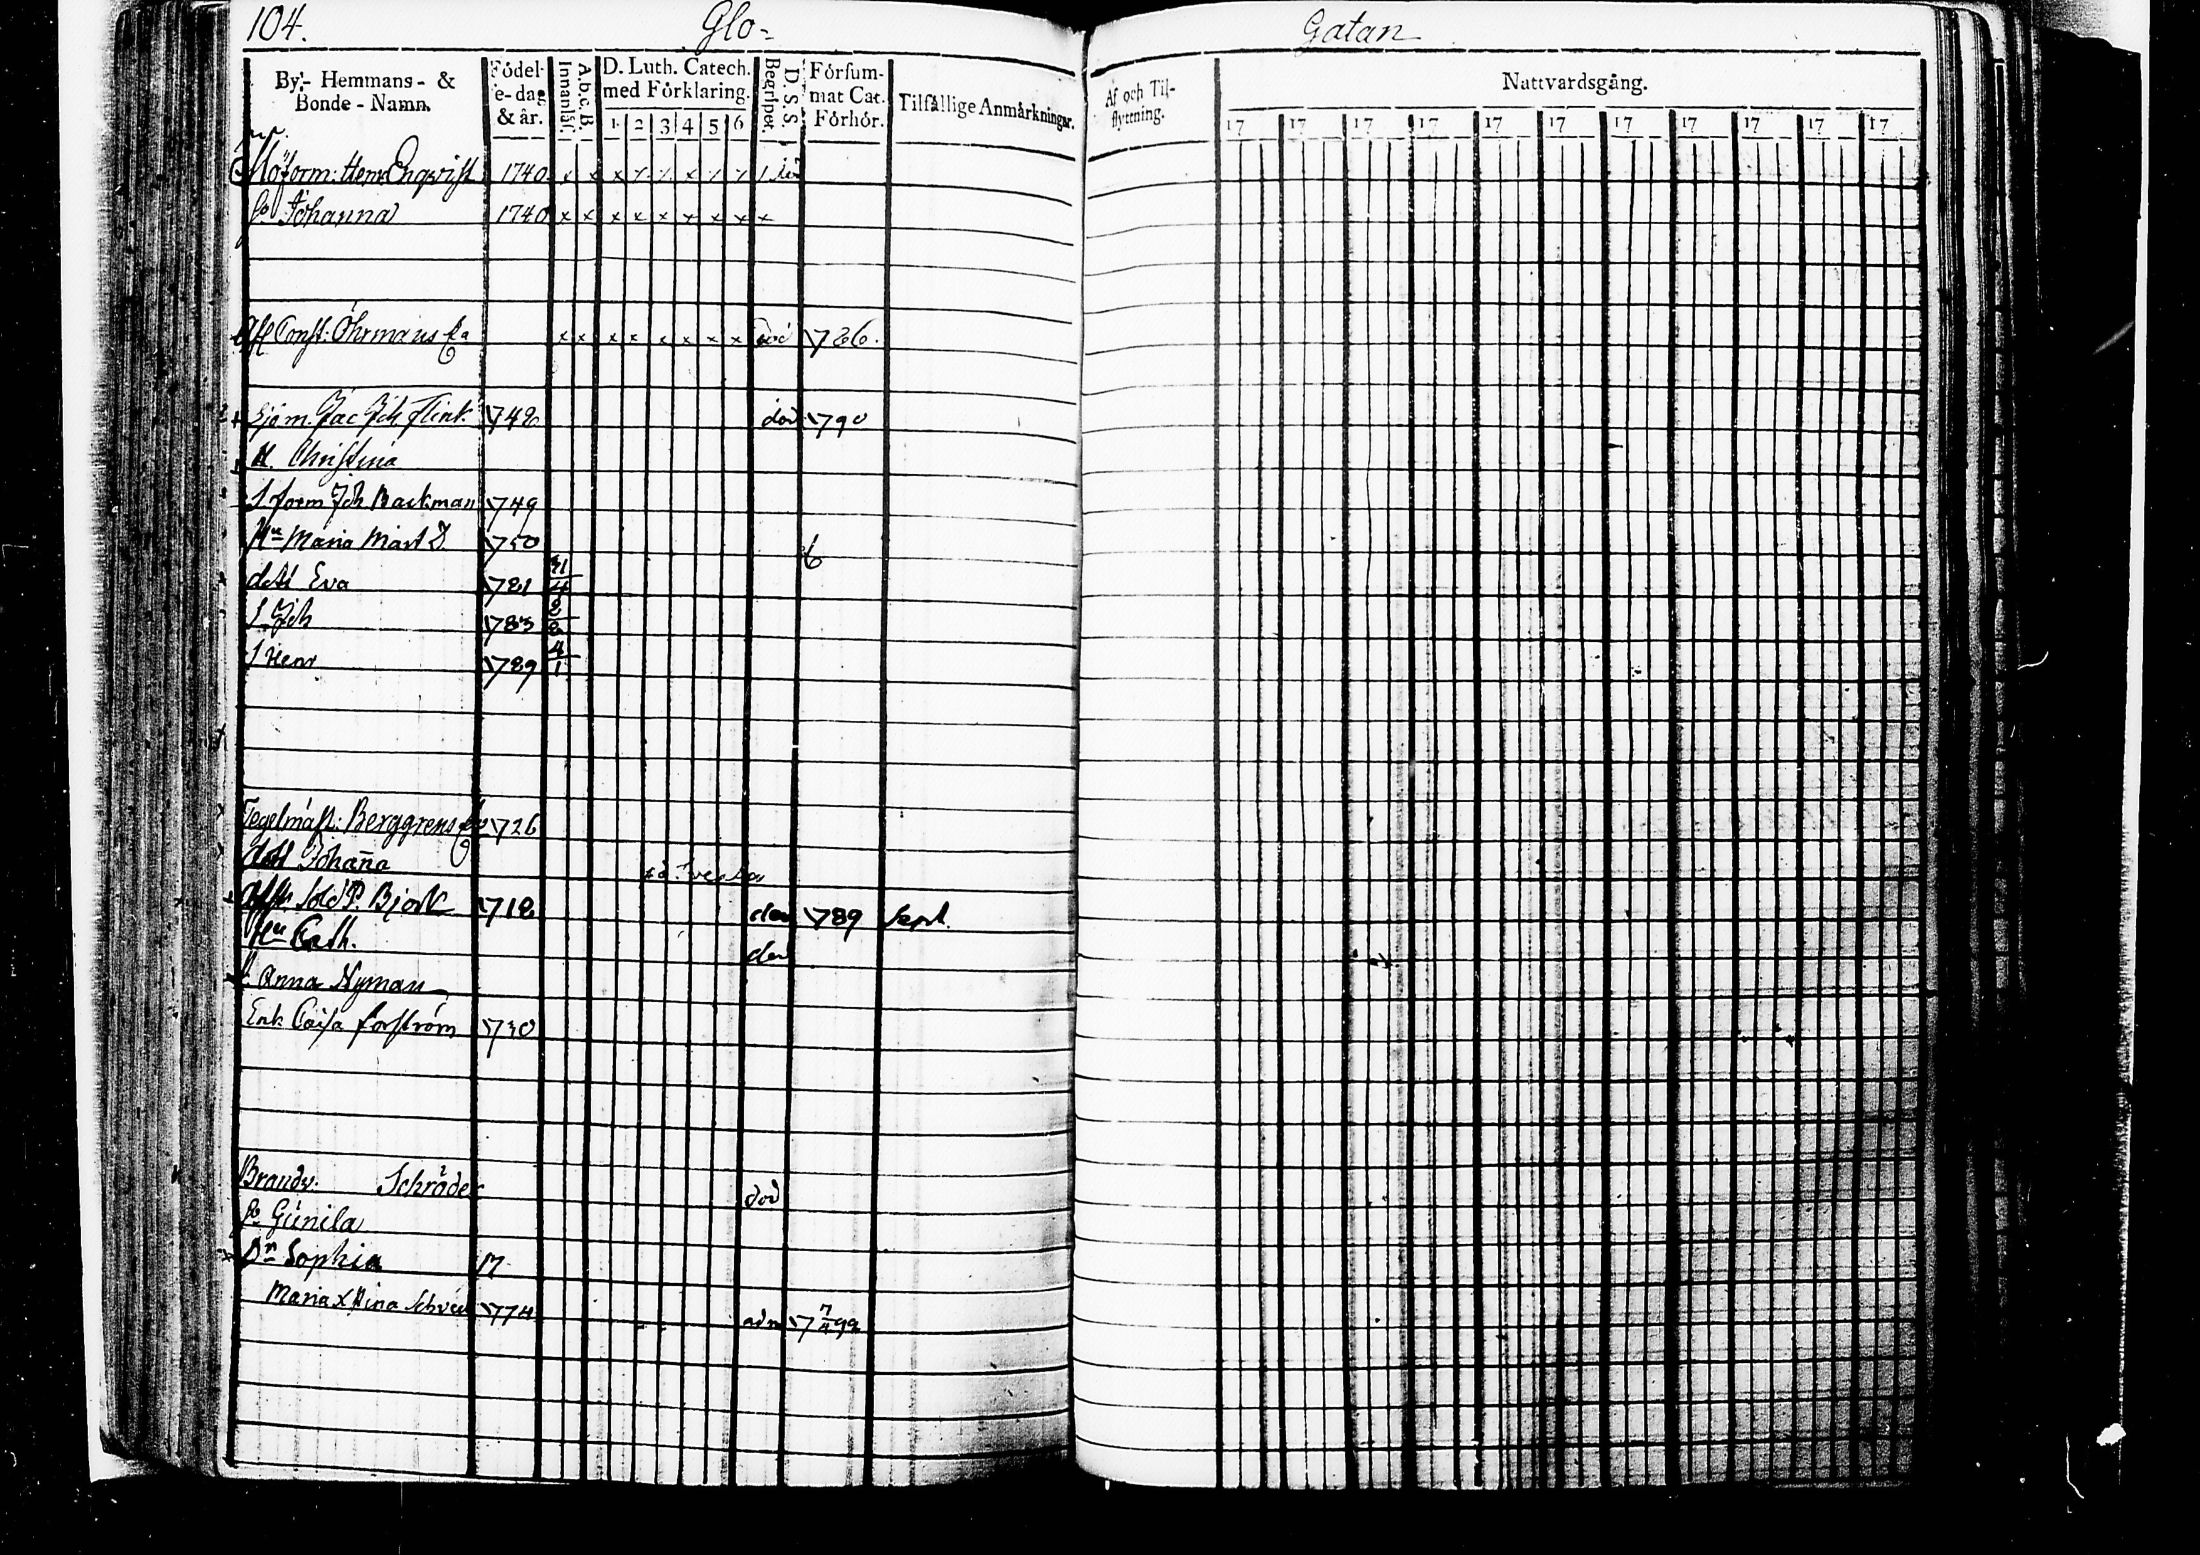 104. Glo= Gatan
By'- Hemmans- & Bonde-Namn.
Födel-e-dag & år.
Innanläs.
A.b.c.B.
D. Luth. Catech. med Förklaring.
1 2 3 4 5 6
D. S. S. Begripet.
Försummat Cat. Förhör.
Tilfällige Anmärkningar.
Af och Tilflyttning.
Nattvardsgång.
17 17 17 17 17 17 17 17 17 17 17
Henr Engqvist 1740 x x x x x x x x död
Johanna 1740 x x x x x x x x x
Öhrmans x x x x x x x x död 1786.
Sjöm. Jac Joh Flink 1748 död 1790
H. Christina
Joh Backman 1749
Hu Maria Mart D. 1750 6
dott Eva 1781 31/4
S Joh 1783 2/8
S Henr 1789 4/1
Tegelmäst: Berggrens 1726
dott Johaña
Sold P. Björk 1718 död 1789 Sept.
Hu Cath. död
Anna Nyman
Enk Caisa Forström 1730
Brandv. Schröder död
Gunila
Dr Sophia 17
Maria Xstina 1774 adm 17 7/4 92